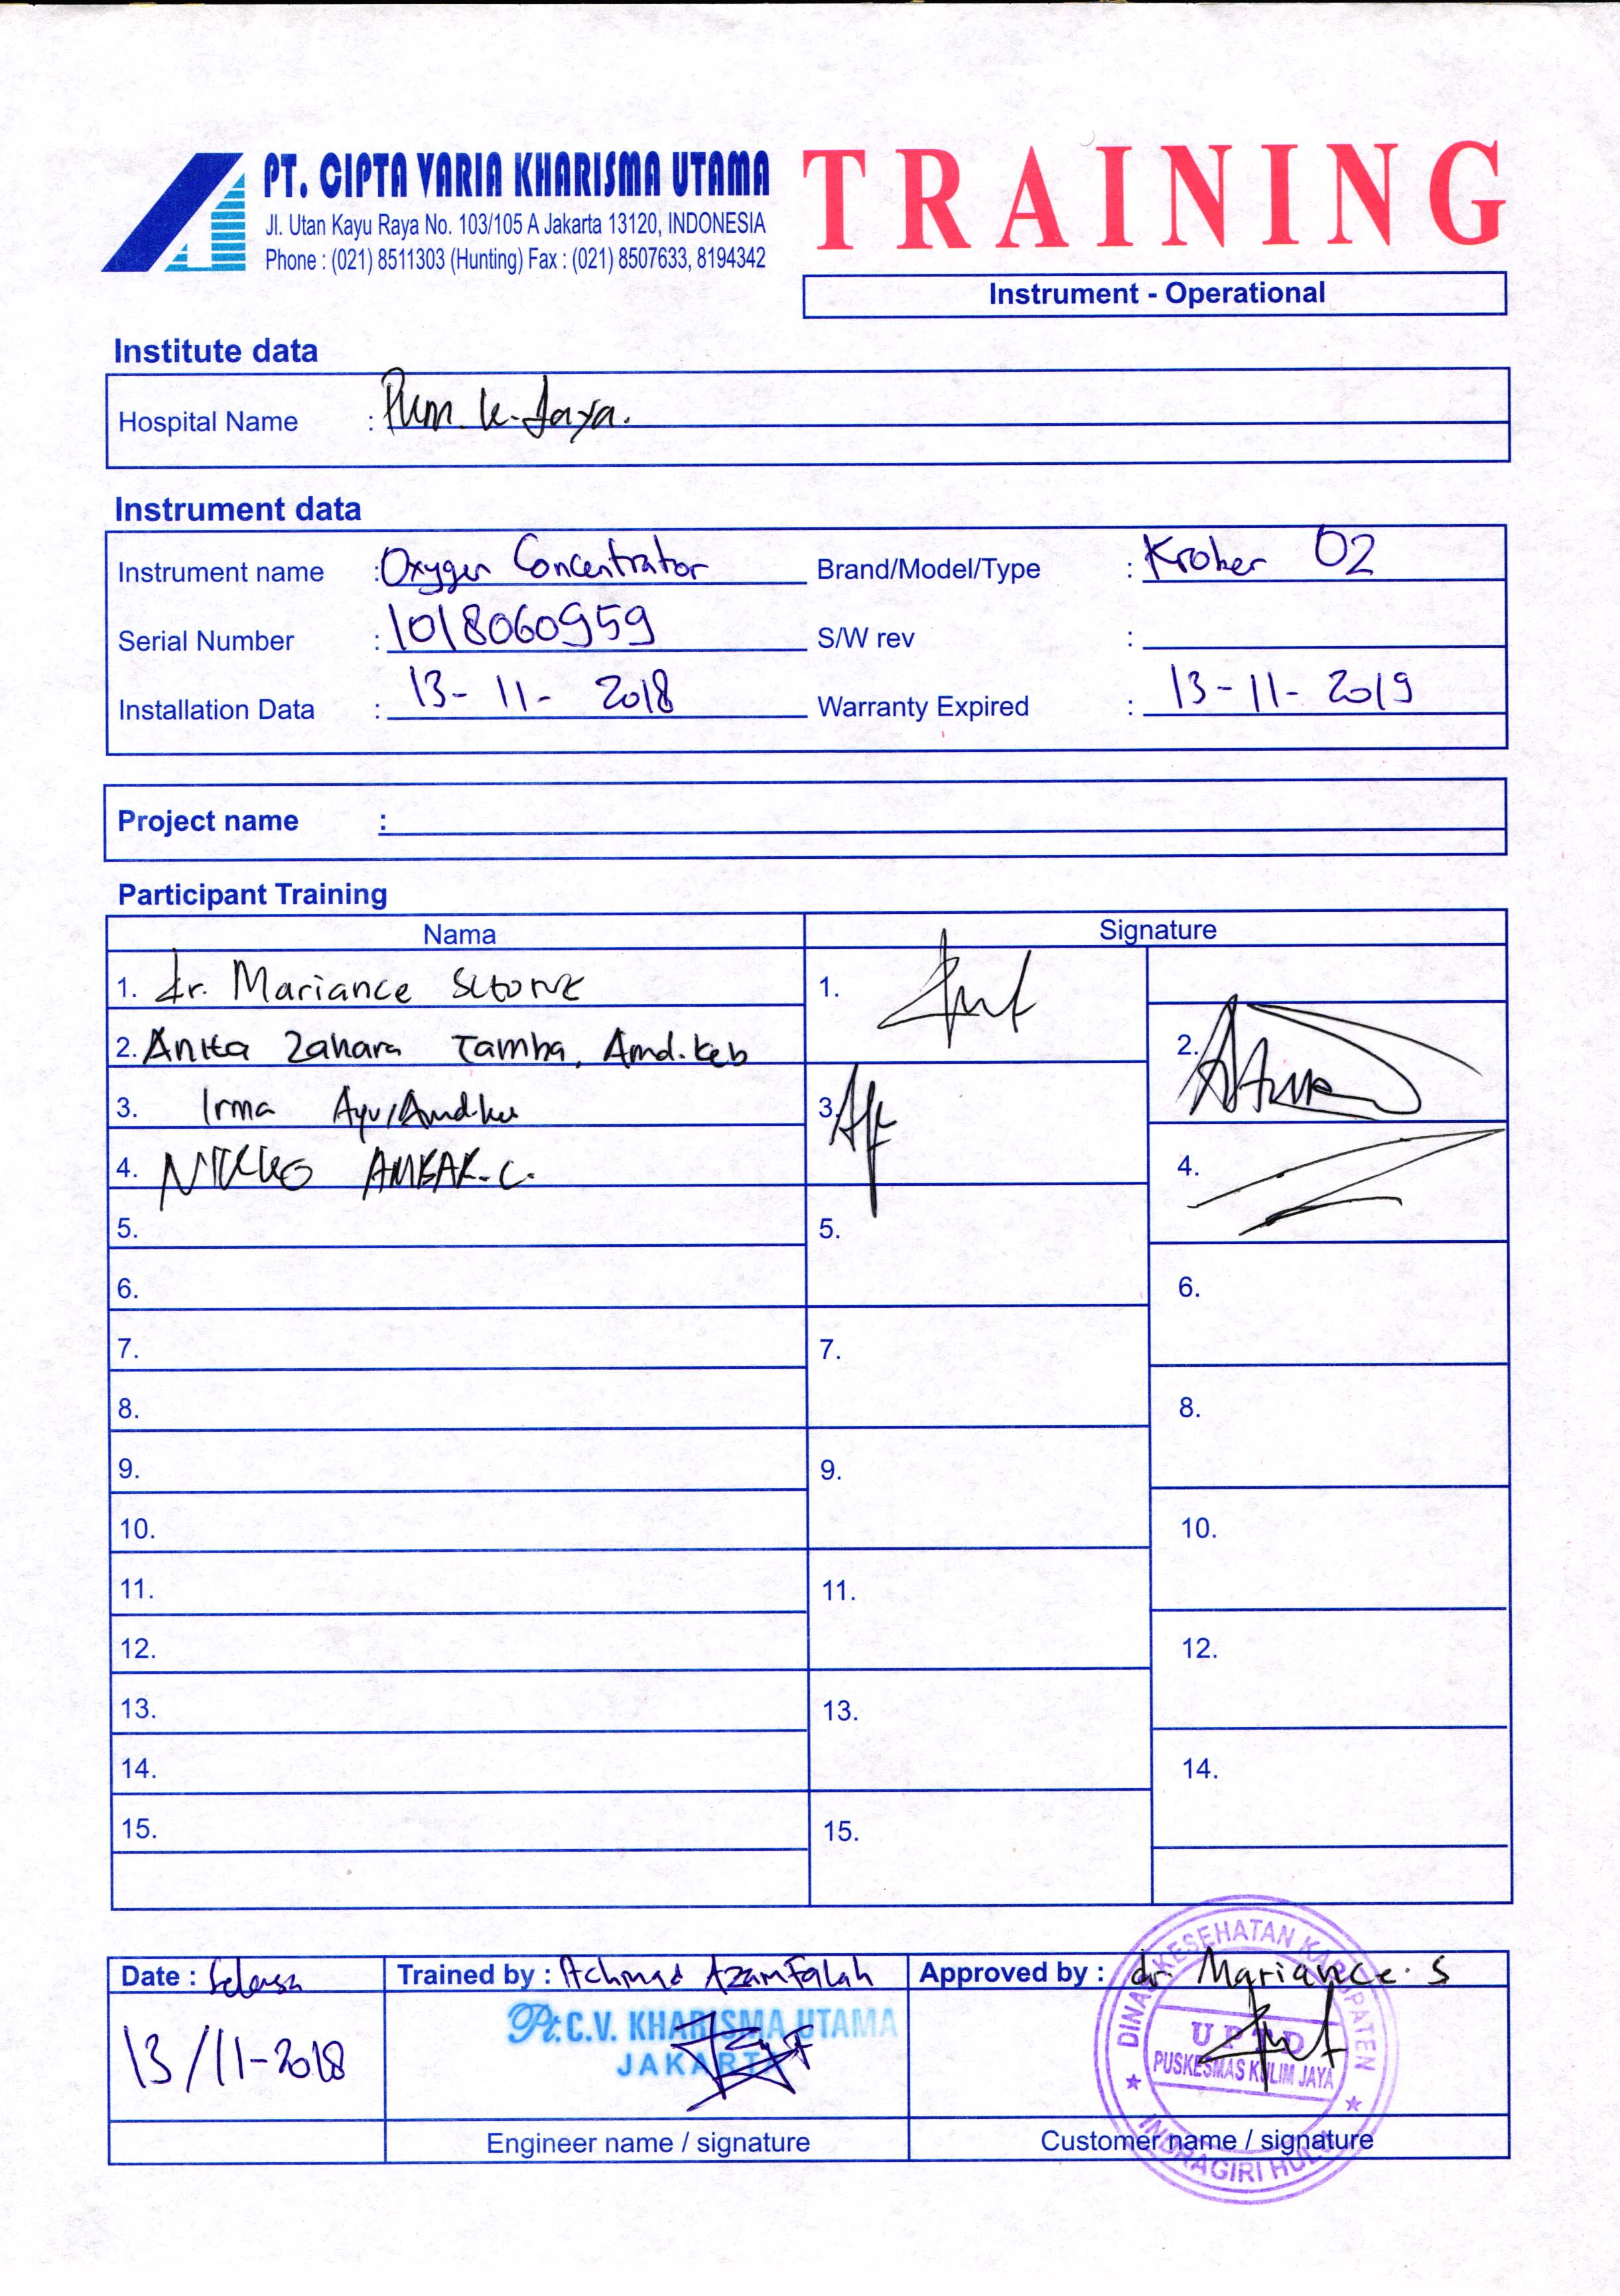 PT. CIPTA VARIA KHARISMA UTAMA
Jl. Utan Kayu Raya No. 103/105 A Jakarta 13120, INDONESIA
Phone : (021) 8511303 (Hunting) Fax : (021) 8507633, 8194342
TRAINING
Instrument - Operational
Institute data
Hospital Name : K. Jaya.
Instrument data
Instrument name : Oxygen Concentrator Brand/Model/Type : Krober O2
Serial Number : 1018060959 S/W rev :
Installation Data : 13-11-2018 Warranty Expired : 13-11-2019
Project name :
Participant Training
Nama Signature
1. dr. Mariance 1.
2. Anita Zahara Tamba, Amd.Keb 2.
3. Irma Ayu, 3.
4. AMBAR. C. 4.
5. 5.
6. 6.
7. 7.
8. 8.
9. 9.
10. 10.
11. 11.
12. 12.
13. 13.
14. 14.
15. 15.
Date : Selasa Trained by : Achmad Azam Falah Approved by : dr. Mariance. S
13/11-2018
Pt. C.V. KHARISMA UTAMA
JAKARTA
DINAS KESEHATAN KABUPATEN
UPTD
PUSKESMAS KULIM JAYA
INDRAGIRI HULU
Engineer name / signature Customer name / signature